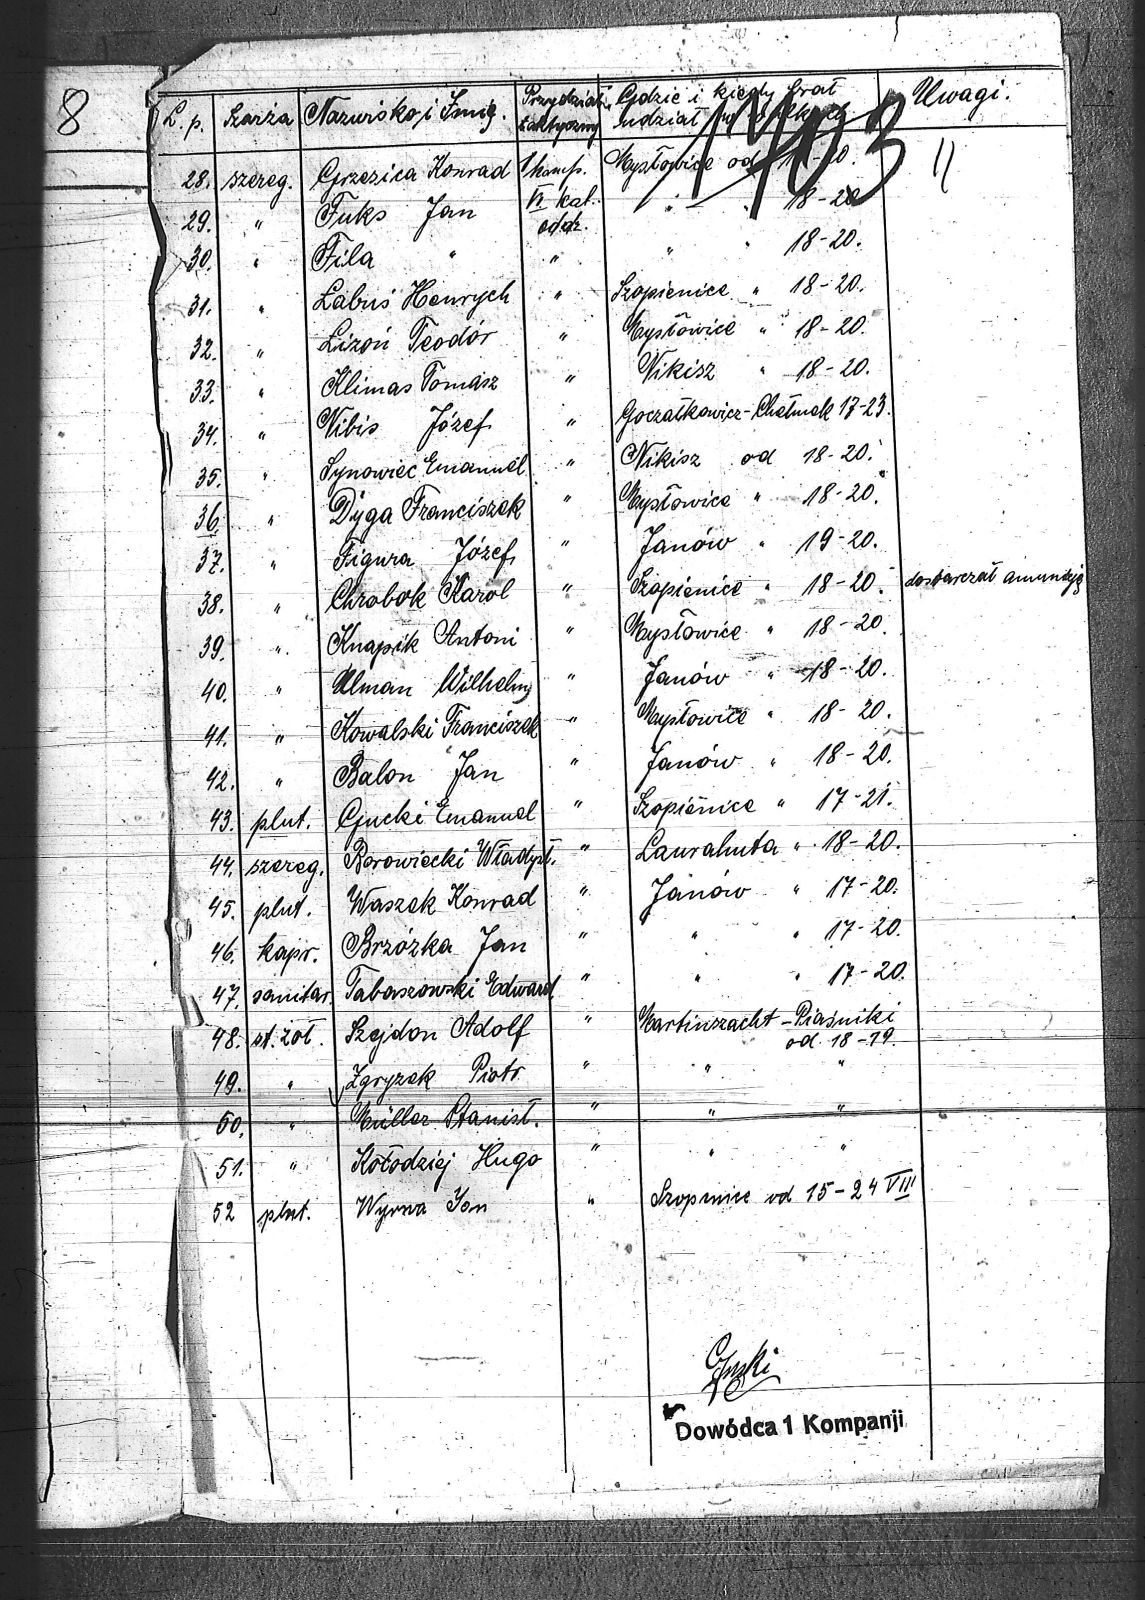 8
1403
11
L. p. Szarża Nazwisko i Imię. Przydział taktyczny Gdzie i kiedy brał udział Uwagi.
28. szereg. Grzesica Konrad 1 komp. Mysłowice od 18-20.
29. " Fuks Jan VI kat. oddz. " " 18-20
30. " Fila " " " " 18-20.
31. " Labuś Henrych " Szopienice " 18-20.
32. " Lizoń Teodór " Mysłowice " 18-20.
33. " Klimas Tomasz " Nikisz " 18-20.
34. " Nibis Józef " Goczałkowicz-Chełmek 17-23.
35. " Synowiec Emanuel " Nikisz od 18-20.
36. " Dyga Franciszek " Mysłowice " 18-20.
37. " Figura Józef " Janów " 19-20.
38. " Chrobok Karol " Szopienice " 18-20. dostarczał amunicję
39. " Knapik Antoni " Mysłowice " 18-20.
40. " Ulman Wilhelm " Janów " 18-20.
41. " Kowalski Franciszek " Mysłowice " 18-20.
42. " Balon Jan " Janów " 18-20.
43. plut. Gucki Emanuel " Szopienice " 17-21.
44. szereg. Borowiecki Władysł. " Laurahuta " 18-20.
45. plut. Waszek Konrad " Janów " 17-20.
46. kapr. Brzózka Jan " " " 17-20.
47. sanitar. Tabaszowski Edward " " " 17-20.
48. st. żoł. Szejdon Adolf " Martinszacht - Piaśniki
od 18-19.
49. " Zgryzek Piotr " " "
50. " Müller Stanisł. " " "
51. " Kołodziej Hugo " " "
52 plut. Wyrwa Jan " Szopienice od 15-24 VIII
Dowódca 1 Kompanji